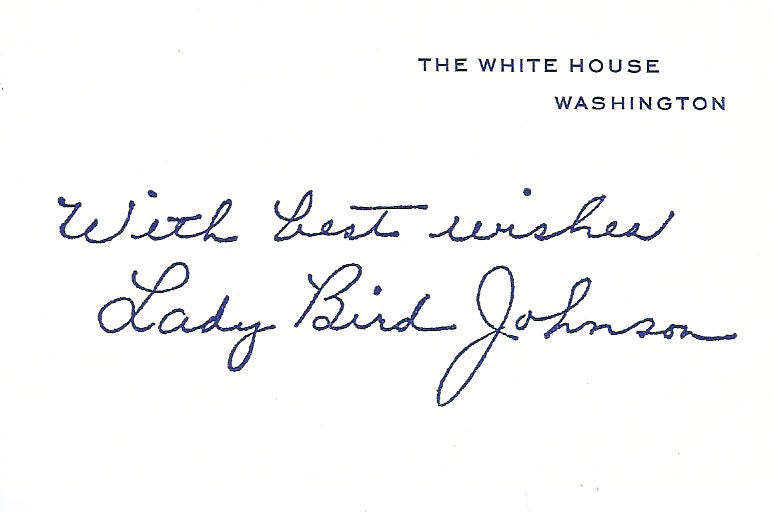 THE WHITE HOUSE
WASHINGTON
With best wishes
Lady Bird Johnson